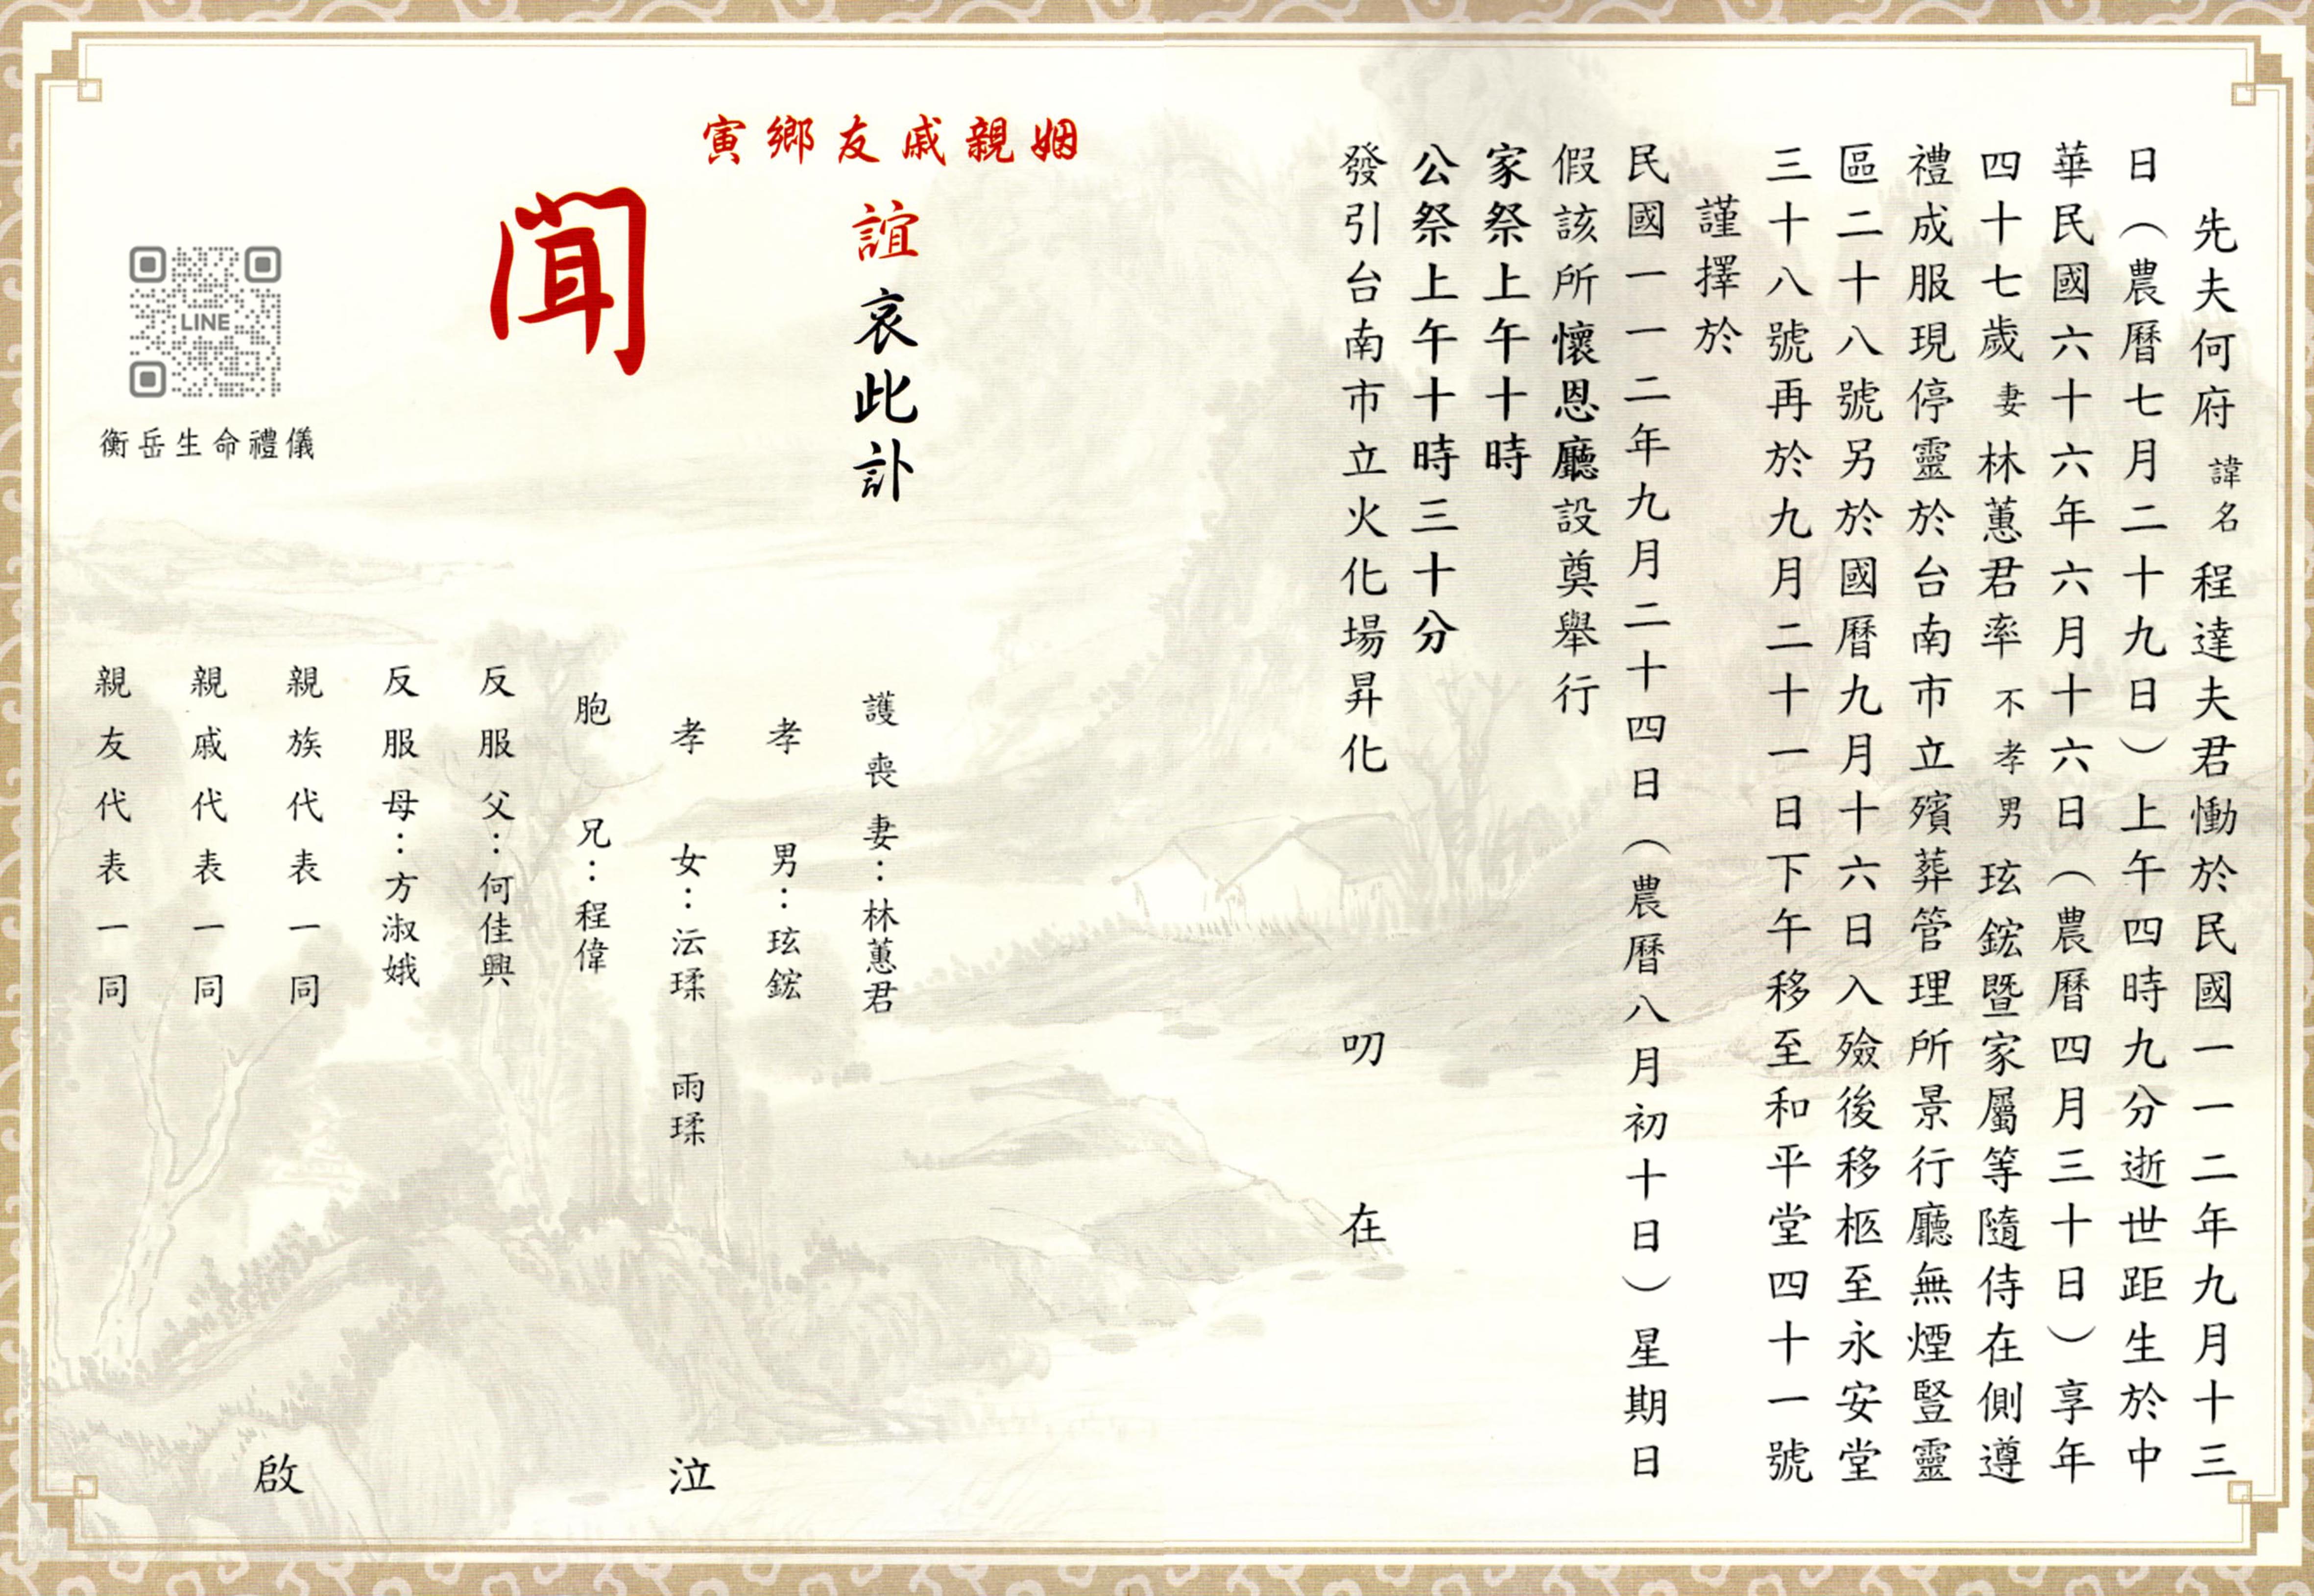 先夫何府諱名程達夫君慟於民國一一二年九月十三
日（農曆七月二十九日）上午四時九分逝世距生於中
華民國六十六年六月十六日（農曆四月三十日）享年
四十七歲妻林蕙君率不孝男玹鋐暨家屬等隨侍在側遵
禮成服現停靈於台南市立殯葬管理所景行廳無煙豎靈
區二十八號另於國曆九月十六日入殮後移柩至永安堂
三十八號再於九月二十一日下午移至和平堂四十一號
謹擇於
民國一一二年九月二十四日（農曆八月初十日）星期日
假該所懷恩廳設奠舉行
家祭上午十時
公祭上午十時三十分
發引台南市立火化場昇化 叨 在
姻親戚友鄉寅
誼哀此訃
聞
護喪妻：林蕙君
孝男：玹鋐
孝女：沄瑈 雨瑈
胞兄：程偉
反服父：何佳興
反服母：方淑娥
親族代表一同
親戚代表一同
親友代表一同
泣 啟
LINE
衡岳生命禮儀